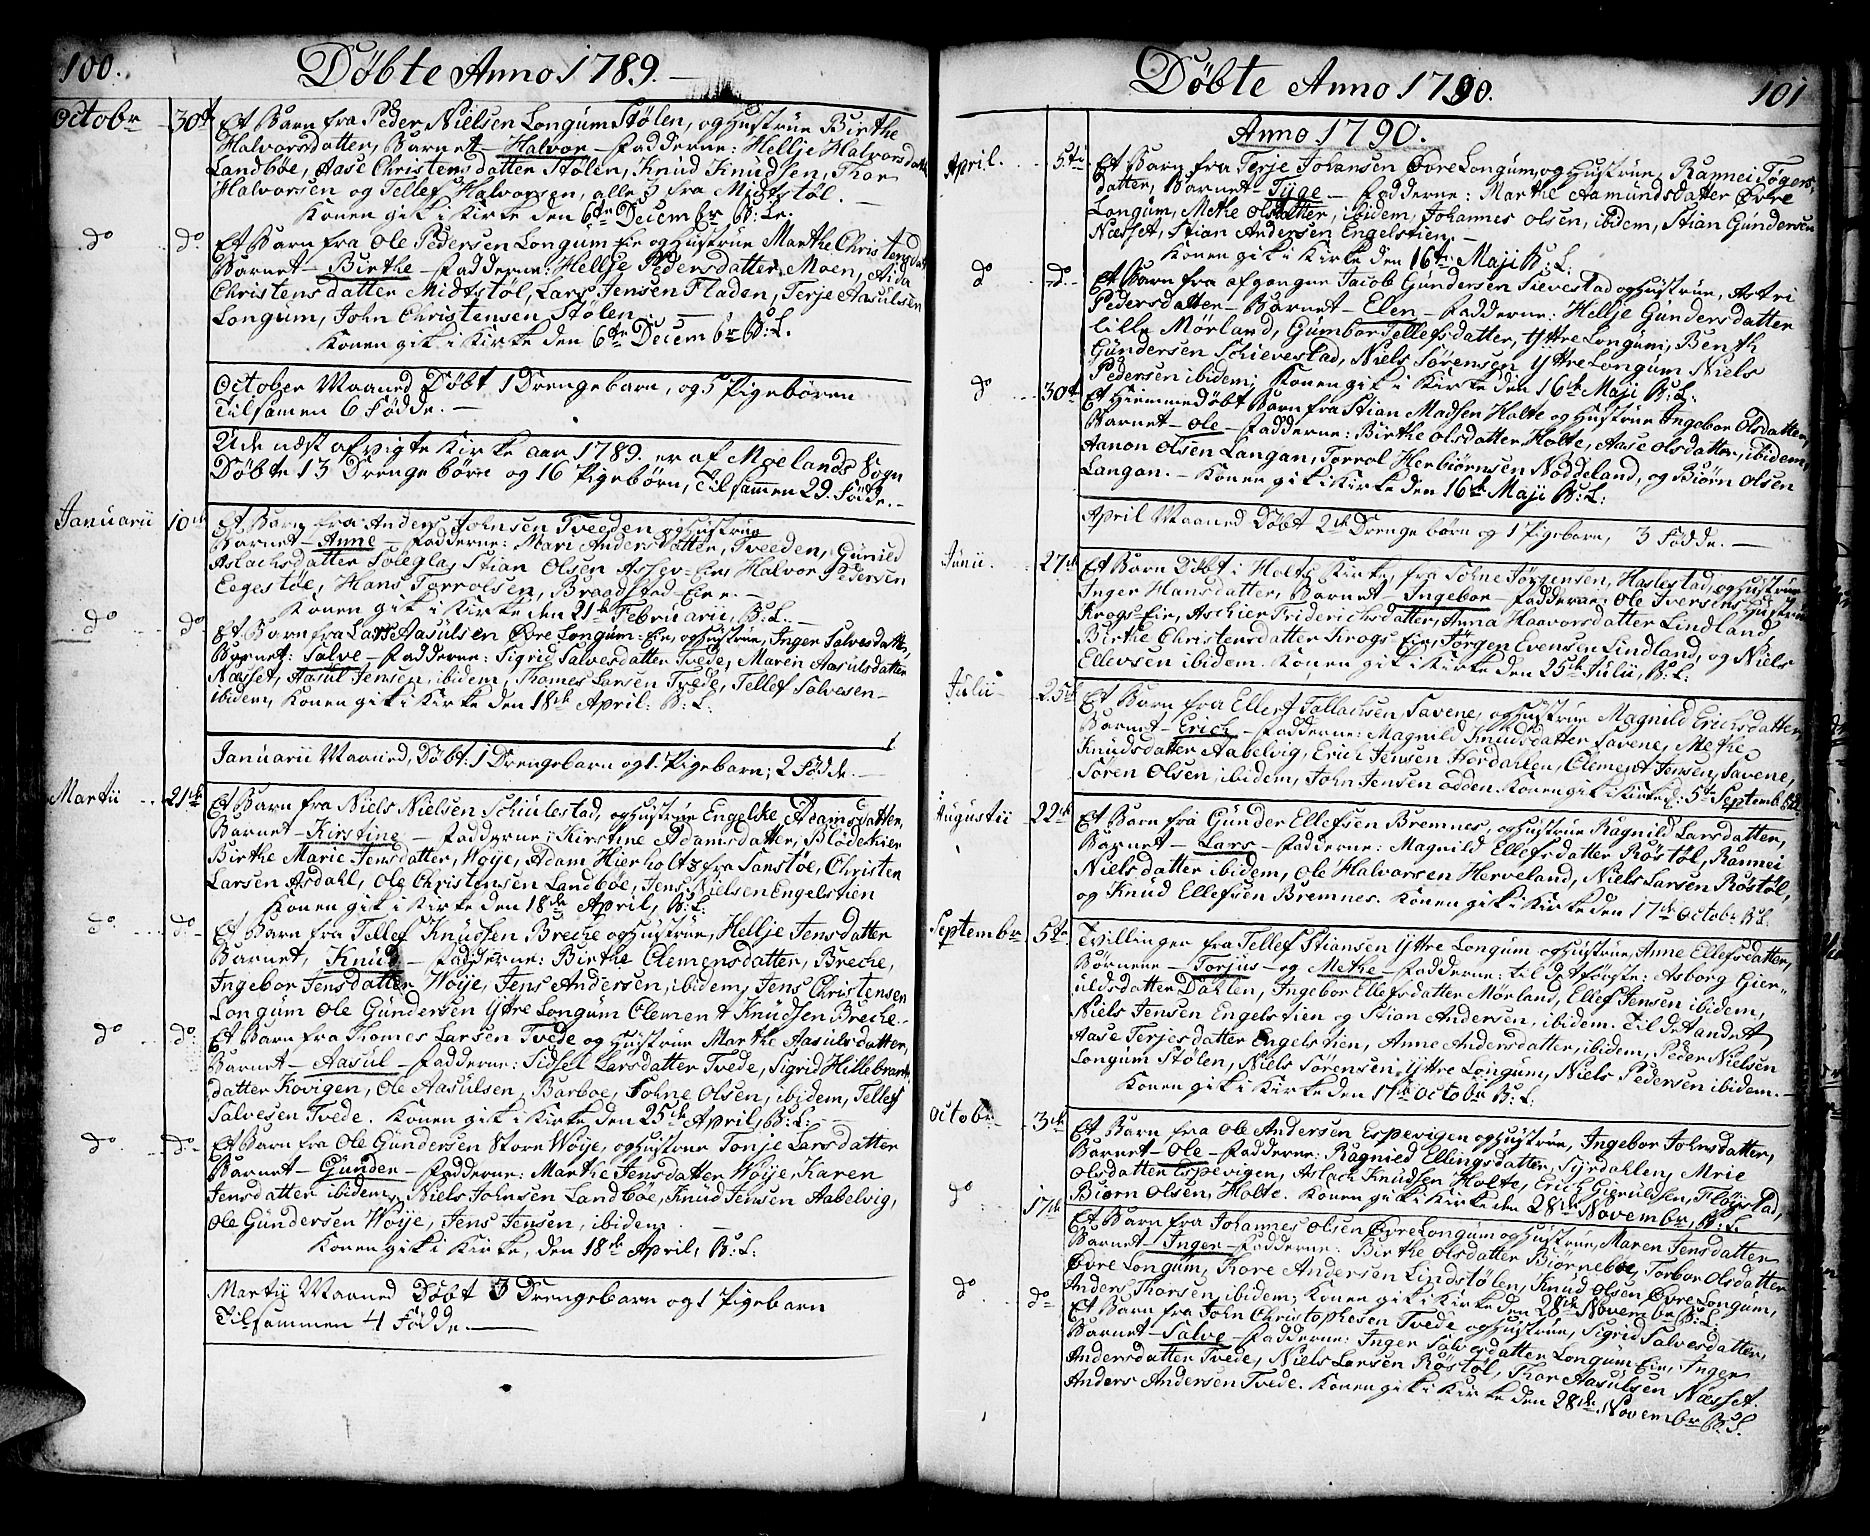 100.
Döbte Anno 1789.
Octobr 30te Et Barn fra Peder Nielsen Longum Stølen, og Hustrue Birthe
Halvorsdatter, Barnet - Halvor - Fadderne: Hellje Halvorsdatter
Landbøe, Aase Christensdatter Stølen, Knud Knudsen, Thor
Halvorsen og Tellef Halvorsen, alle 3 fra Midtstøl. -
Konen gik i Kirke den 6te Decembr B: L:
do do Et Barn fra Ole Pedersen Longum Eie og Hustrue Marthe Christensdatt
Barnet - Birthe - Fadderne: Hellje Pedersdatter Moen, Aida
Christensdatter Midtstøl, Lars Jensen Fladen, Terje Aasulsen
Longum, John Christensen Stølen. -
Konen gik i Kirke den 6te Decembr B: L.
October Maaned Döbt 1 Drengebarn, og 5 Pigebören
Tilsamen 6 Födde. -
Ude næst afvigte Kirke aar 1789. er af Moelands Sogn
Döbte 13 Drengebörn og 16 Pigebörn, Tilsammen 29. Födte. -
Januarii 10de Et Barn fra Anders Johnsen Tveeden og Hustrue
Barnet - Anne - Fadderne: Mari Andersdatter, Tveeden, Gunild
Aslachsdatter Soleglad, Stian Olsen Asjer-Eie, Halvor Pedersen
Eegestøl, Hans Torrolsen, Braadstad-Eie. -
Konen gik i Kirke den 21de Februarii, B: L. -
do do Et Barn fra Lars Aasulsen Øvre Longum-Eie, og Hustrue, Inger Salvesdatt:,
Barnet: Salve - Fadderne: Sigrid Salvesdatter Tvede, Maren Aasulsdatter
Næsset, Aasul Jensen, ibidem, Thomes Larsen Tvede, Tellef Salvesen -
ibidem, Konen gik i Kirke den 18de April: B: L:
Januarii Maaned, Döbt: 1 Drengebarn og 1. Pigebarn; 2 Födde. -
Martii 21de Et Barn fra Niels Nielsen Schiulestad, og Hustrue Engelke Adamsdatter,
Barnet - Kirstine - Fadderne: Kirstine Adamsdatter, Blödekier
Birthe Marie Jensdatter, Woje, Adam Hierholtz fra Sanstöe, Christen
Larsen Asdahl, Ole Christensen Landbøe, Jens Nielsen Engelstien
Konen gik i Kirke den 18de April, B: L:
do do Et Barn fra Tellef Knudsen Breche og Hustrue, Hellje Jensdatter
Barnet, Knud - Fadderne: Birthe Clemensdatter, Breche,
Ingebor Jensdatter, Wöije, Jens Andersen, ibidem, Jens Christensen
Longum Ole Gundersen Yttre Longum Clement Knudsen Breche. -
do do Et Barn fra Thomes Larsen Tvede og Hustrue Marthe Aasulsdatter,
Barnet - Aasul - Fadderne: Sidsel Larsdatter Tvede, Sigrid Hillebrants
datter Kovigen, Ole Aasulsen, Barboe, Sohne Olsen, ibidem, Tellef
Salvesen Tvede. Konen gik i Kirke den 25de April, B: L: -
do do Et Barn fra Ole Gundersen Store Wöije, og Hustrue Tonje Larsdatter
Barnet - Gunder - Fadderne: Marthe Jensdatter Wöije, Karen
Jensdatter ibidem, Niels Johnsen Landbøe, Knud Jensen Aabelvig,
Ole Gundersen Wöije, Jens Jensen, ibidem. -
Konen gik i Kirke, den 18de April, B: L:
Martii Maaned Döbt 3 Drengebarn og 1 Pigebarn
Tilsammen 4 Födde. -
Döbte Anno 1790. 101
Anno 1790.
April. 5te Et Barn fra Terje Johansen Øvre Longum, og Hustrue, Rannei Tögers,
datter, Barnet - Tyge - Fadderne: Marthe Aamundsdatter Øvre
Longum, Methe Olsdatter, ibidem, Johannes Olsen, ibidem, Stian Gundersen
Næsset, Stian Andersen Engelstien. -
Konen gik i Kirke den 16de Maji B: L:
do do Et Barn fra afgangne Jacob Gundersen Sievestad og Hustrue, Astri
Pedersdatter - Barnet - Elen - Fadderne: Hellje Gundersdatter
Lille Mörland, Gumbor Tellefsdatter, Yttre Longum, Benth
Gundersen Schievestad, Niels Sörensen Yttre Longum Niels
Pedersen ibidem; Konen gik i Kirke den 16de Maji B: L:
do 30te Et Hiemmedöbt Barn fra Stian Madsen Holte og Hustrue Ingebor Olsdatter,
Barnet - Ole - Fadderne: Birthe Olsdatter Holte, Aase Olsdatter, ibidem,
Aanon Olsen Langan, Torrol Herbiörnsen Noddeland, og Biörn Olsen
Langan. - Konen gik i Kirke den 16de Maji B: L:
April Maaned Döbt 2de Drengebörn og 1 Pigebarn, 3 Födde. -
Junii. 27de Et Barn Döbt i Holte Kirke, fra Sohne Jörgensen, Haslestad, og Hustrue
Inger Hansdatter, Barnet - Ingebor - Fadderne: Ole Iversens Hustrue
Krogs Eie, Aschier Friderichsdatter, Anna Haavorsdatter Lindland,
Birthe Christensdatter Krogs Eie, Jörgen Evensen Lindland, og Niels
Ellevsen ibidem. Konen gik i Kirke den 25de Julii, B: L:
Julii - 25de Et Barn fra Ellef Tallachsen, Savene, og Hustrue Magnild Erichsdatter,
Barnet - Erich - Fadderne: Magnild Knudsdatter Savene, Methe
Knudsdatter Aabelvig, Erich Jensen Hordahlen, Clement Jensen, Savene,
Sören Olsen ibidem, John Jensen Odden. Konen gik i Kirke d: 5te Septemb. B:L:
Augustii 22de Et Barn fra Gunder Ellefsen Bremnes, og Hustrue Ragnild Larsdatter,
Barnet - Lars - Fadderne: Magnild Ellefsdatter Röstöl, Rannei
Nielsdatter ibidem, Ole Halvorsen Herveland, Niels Larsen Röstöl,
og Knud Ellefsen Bremnes. Konen gik i Kirke den 17de Octobr B: L:
Septembr 5te Tvillinger fra Tellef Stiansen Yttre Longum og Hustrue, Anne Ellefsdatter,
Börnene - Torjus - og Methe - Fadderne: til det förste: Asborg Gier-
uldsdatter Dahlen, Ingebor Ellefsdatter Mörland, Ellef Jensen ibidem,
Niels Jensen Engelstien og Stian Andersen, ibidem. Til det andet
Aase Terjesdatter Engelstien, Anne Andersdatter, ibidem, Peder Nielsen
Longum Stölen, Niels Sörensen, Yttre Longum, Niels Pedersen ibidem. -
Konen gik i Kirke den 17de Octobr B: L:
Octobr 3de Et Barn fra Ole Andersen Espevigen og Hustrue, Ingebor Johnsdatter,
Barnet - Ole - Fadderne: Ragnied Ellingsdatter, Syrdahlen, Mrie
Olsdatter Espevigen, Aslach Knudsen Holte, Erich Gieruldsen, Flöijstad,
Biörn Olsen, Holte. Konen gik i Kirke den 28de Novembr, B: L
do 17de Et Barn fra Johannes Olsen Øvre Longum og Hustrue, Maren Jensdatter
Barnet - Inger - Fadderne: Birthe Olsdatter Biörneboe, Torbor Olsdatter
Øvre Longum, Thore Andersen Lindstölen, Knud Olsen Øvre Longum,
Anders Thorsen, ibidem; Konen gik i Kirke den 28de Novembr B: L:
do do Et Barn fra John Christophesen Tvede og Hustrue, Sigrid Salvesdatter,
Barnet - Salve - Fadderne: Inger Salvesdatter Longum Eie, Inger
Andersdatter Tvede, Niels Larsen Röstöl, Thor Aasulsen Næsset.
Anders Andersen Tvede. Konen gik i Kirke den 28de Novembr B: L.